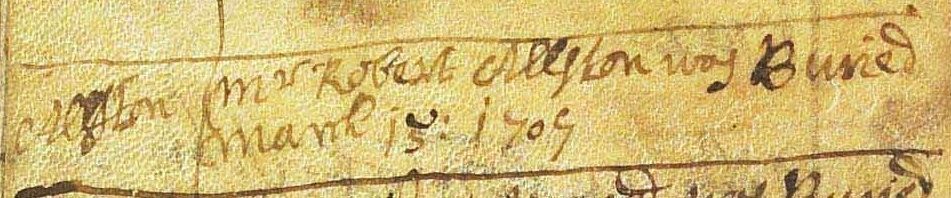 Mr Robert Allston was Buried
Allston March 15: 1707
was Buried